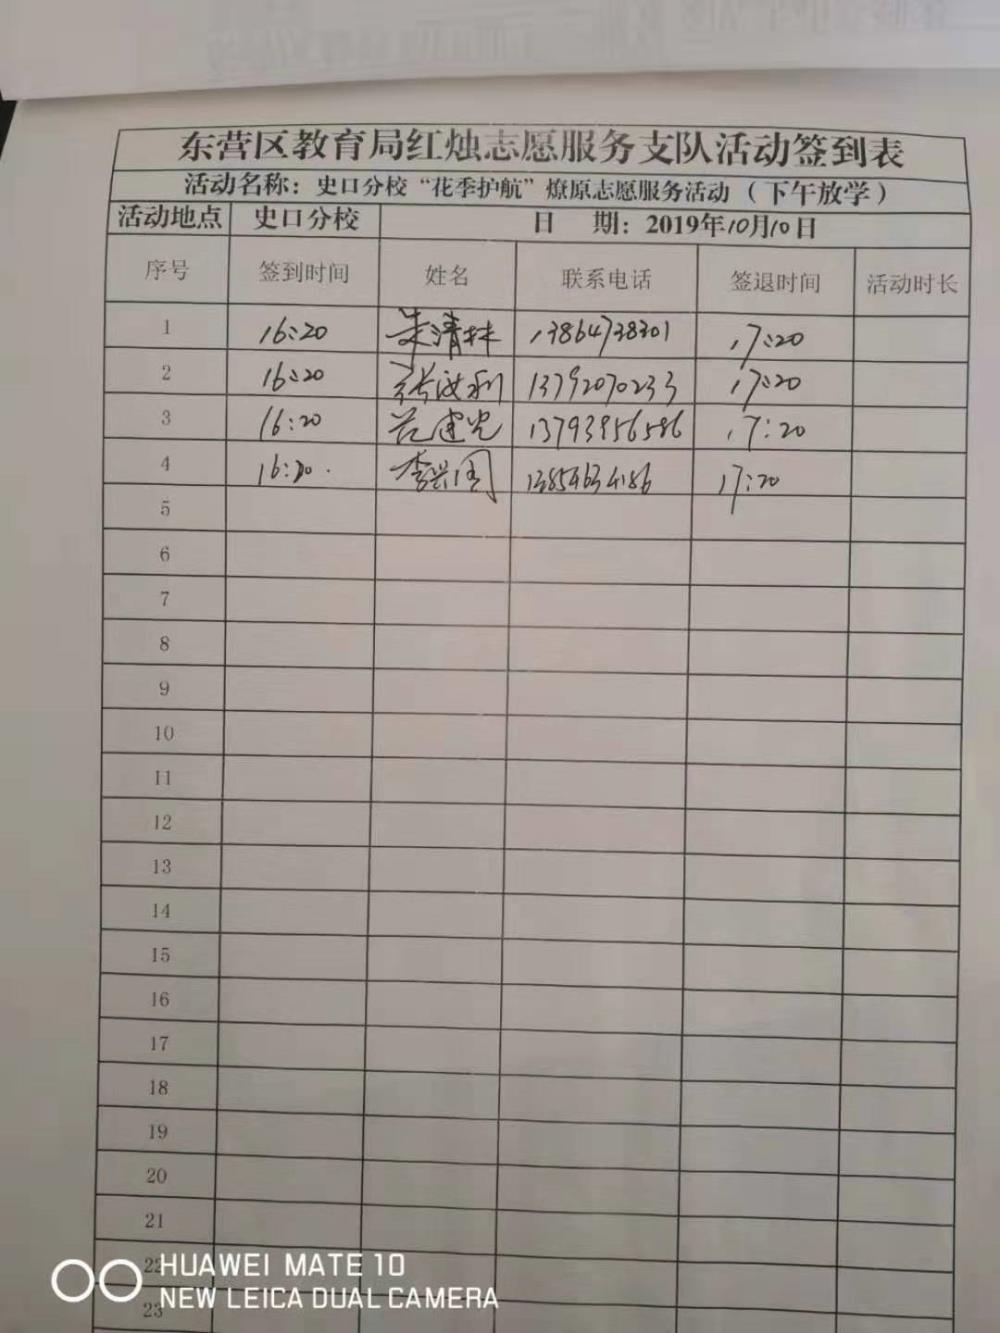 东营区教育局红烛志愿服务支队活动签到表
活动名称：史口分校“花季护航”燎原志愿服务活动（下午放学）
活动地点 史口分校 日 期：2019年10月10日
序号 签到时间 姓名 联系电话 签退时间 活动时长
1 16:20 朱清林 13864738301 17:20
2 16:20 张汝利 13792070233 17:20
3 16:20 范建光 13793956586 17:20
4 16:20. 李兴国 13854634186 17:20
5
6
7
8
9
10
11
12
13
14
15
16
17
18
19
20
21
22
23
HUAWEI MATE 10
NEW LEICA DUAL CAMERA